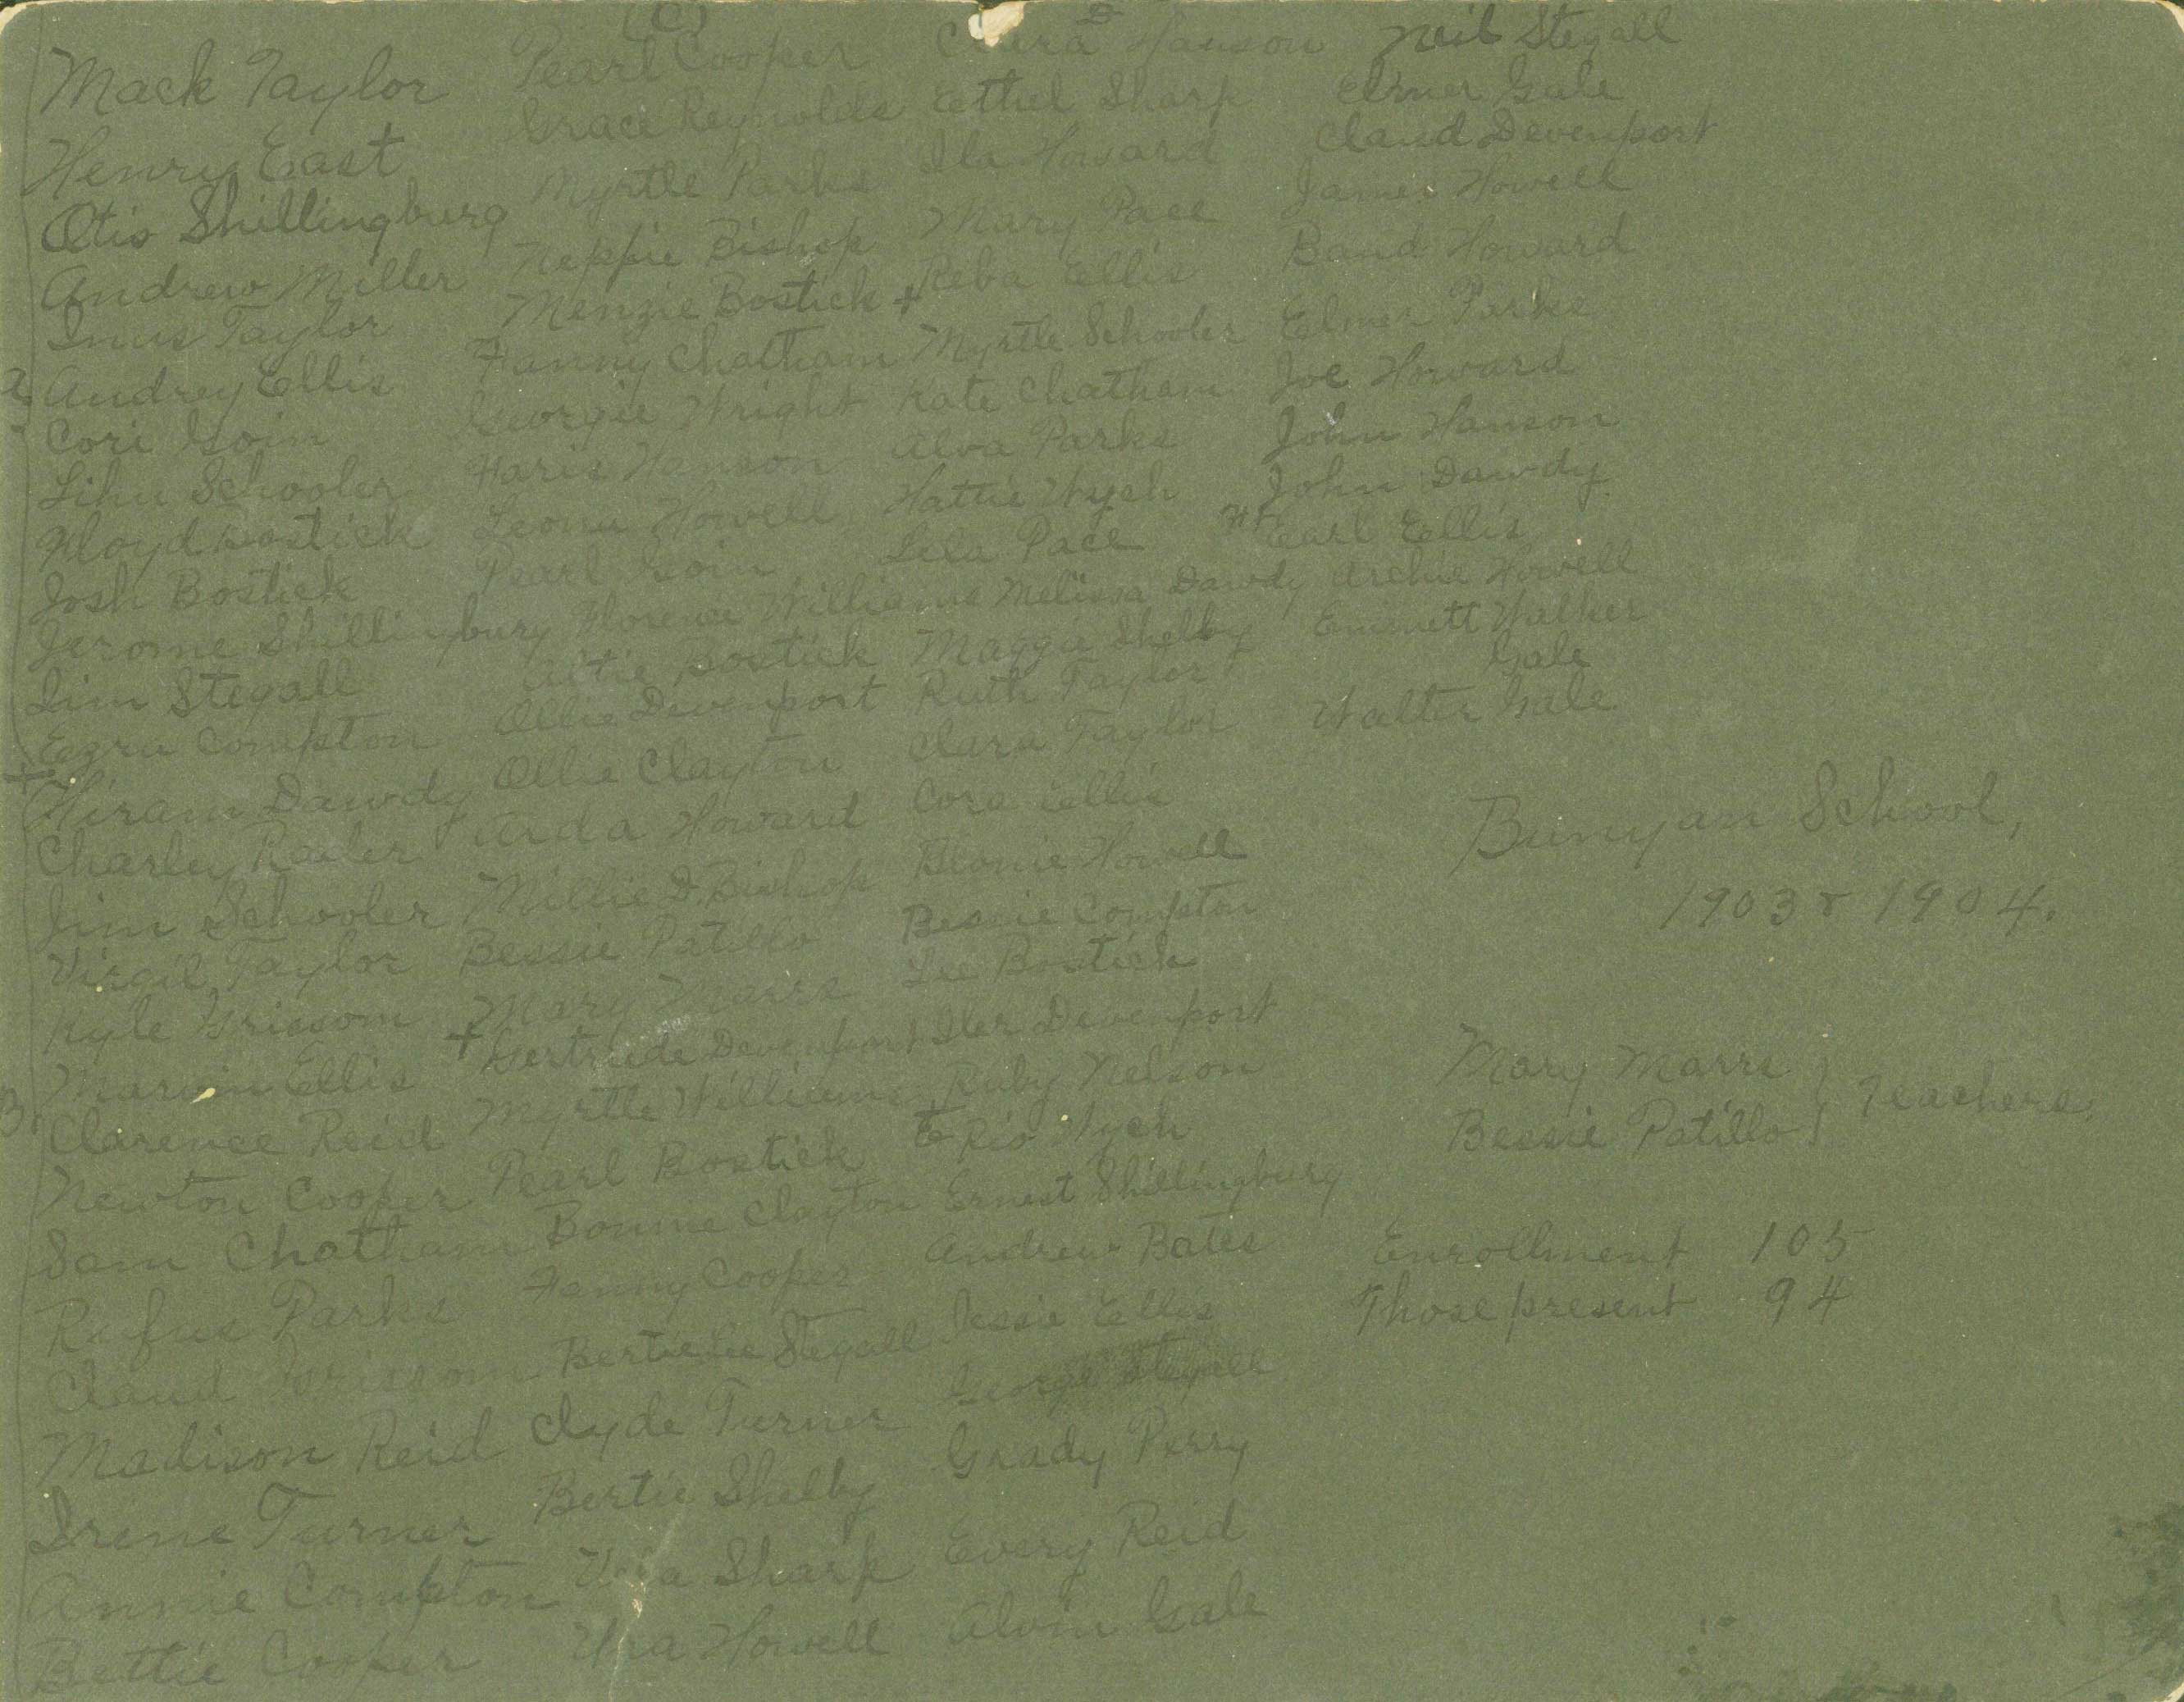 (C)
D
Mack Taylor
Henry East
Otis Shillingburg
Andrew Miller
Taylor
A. Audrey Ellis
Cori Goin
Lihu Schooler
Floyd Bostick
Josh Bostick
Jerome Shillingburg
Jim Stegall
Ezra Compton
+ Hiram Dawdy
Charley
Jim Schooler
Virgil Taylor
Kyle Grissom
Marvin Ellis
B. Clarence Reid
Newton Cooper
Sam Chatham
Rufus Parks
Claud Grissom
Madison Reid
Irene Turner
Annie Compton
Bettie Cooper
Pearl Cooper
Grace Reynolds
Myrtle Parks
Neppie Bishop
Menzie Bostick +
Fanny Chatham
Georgie Wright
Haris Hanson
Leona Howell
Pearl Goin
Florence Williams
Altie Bostick
Ollie Devenport
Ollie Clayton
Arda Howard
Millie D. Bishop
Bessie Patillo
Mary Marrs
+ Gertrude Devenport
Myrtle Williams
Pearl Bostick
Bonnie Clayton
Fanny Cooper
Stegall
Clyde Turner
Bertie Shelby
Sharp
Ura Howell
Clara Hanson
Eethel Sharp
Ila Howard
Mary Pace
Reba Ellis
Myrtle Schooler
Kate Chatham
Alva Parks
Hattie Wych
Lela Pace
Melissa Dawdy
Maggie Shelby
Ruth Taylor
Clara Taylor
Cora Ellis
Howell
Bessie Compton
Lee Bostick
Iler Devenport
Ruby Nelson
Rio Wych
Ernest Shillingburg
Andrew Bates
Jessie Ellis
George Stegall
Grady Perry
Every Reid
Alvin Gale
Neil Stegall
Elmer Gale
Claud Devenport
James Howell
Band Howard
Elmer Parks
Joe Howard
John Hanson
John Dawdy
Earl Ellis
Archie Howell
Emmett Walker
Gale
Walter Gale
Bunyan School,
1903 & 1904.
Mary Marrs
Bessie Patillo } Teachers.
Enrollment 105
Those present 94